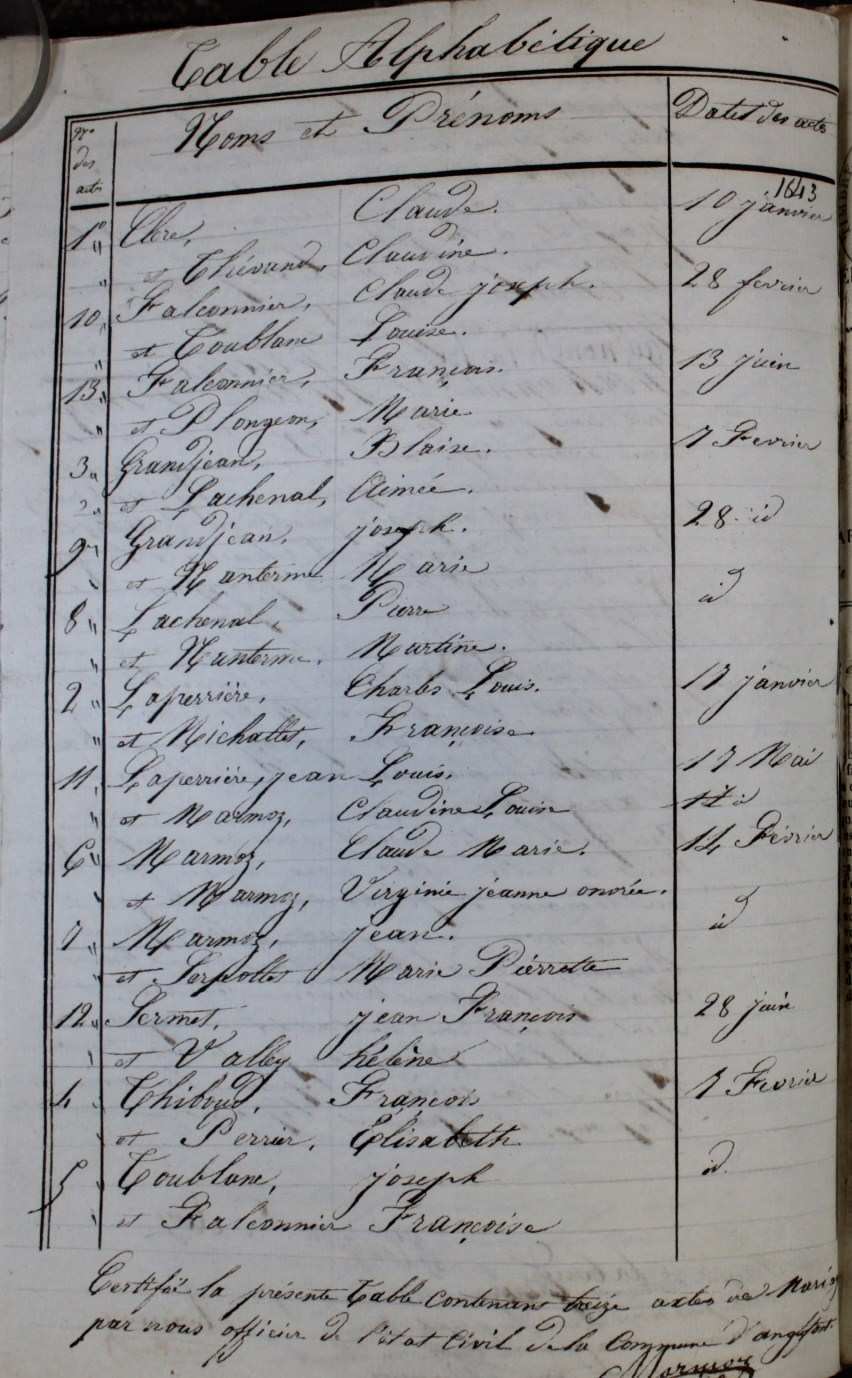 Table Alphabétique
Nos des actes
Noms et Prénoms
Dates des actes
1843
1 " Clere, Claude. 10 janvier
" et Thévand, Claudine.
10, Falconnier, Claude joseph. 28 fevrier
" et Toublanc Louise.
13 " Falconnier, François. 13 juin
" et Plongeon, Marie
3 " Grandjean, Blaise. 7 Fevrier
" et Lachenal, Aimée.
9 " Grandjean, joseph. 28 id
" et Nanterme Marie
8 " Lachenal, Pierre id
" et Nanterme, Martine.
2 " Laperrière, Charles Louis. 17 janvier
" et Michallet, Françoise
11, Laperrière, jean Louis. 17 Mai
" et Marmoz, Claudine Louise
6 " Marmoz, Claude Marie. 14 Février
" et Marmoz, Virginie jeanne onorée.
7 " Marmoz, jean. id
" et Serpollet Marie Pierrette
12 " Sermet, jean François 28 juin
" et Valley hélène
4 " Thiboud, François 7 Fevrier
" et Perrier, Elisabeth
5 Toublanc, joseph id
" et Falconnier Françoise
Certifié la présente Table contenant treize actes de Mariage
par nous officier de l'état Civil de la Commune d'anglefort.
Marmoz